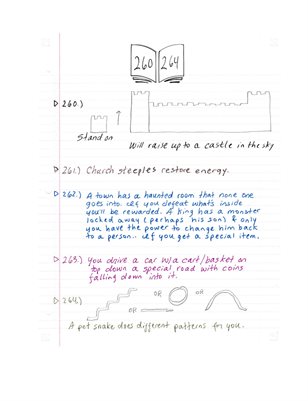 260 264
260.)
Stand on
Will raise up to a castle in the sky
261.) Church steeples restore energy.
262.) A town has a haunted room that none one
goes into. If you defeat what's inside
you'll be rewarded. A king has a monster
locked away (perhaps his son) & only
you have the power to change him back
to a person.. If you get a special item.
263.) You drive a car w/a cart/basket on
top down a special road with coins
falling down into it.
264.)
OR OR OR
A pet snake does different patterns for you.